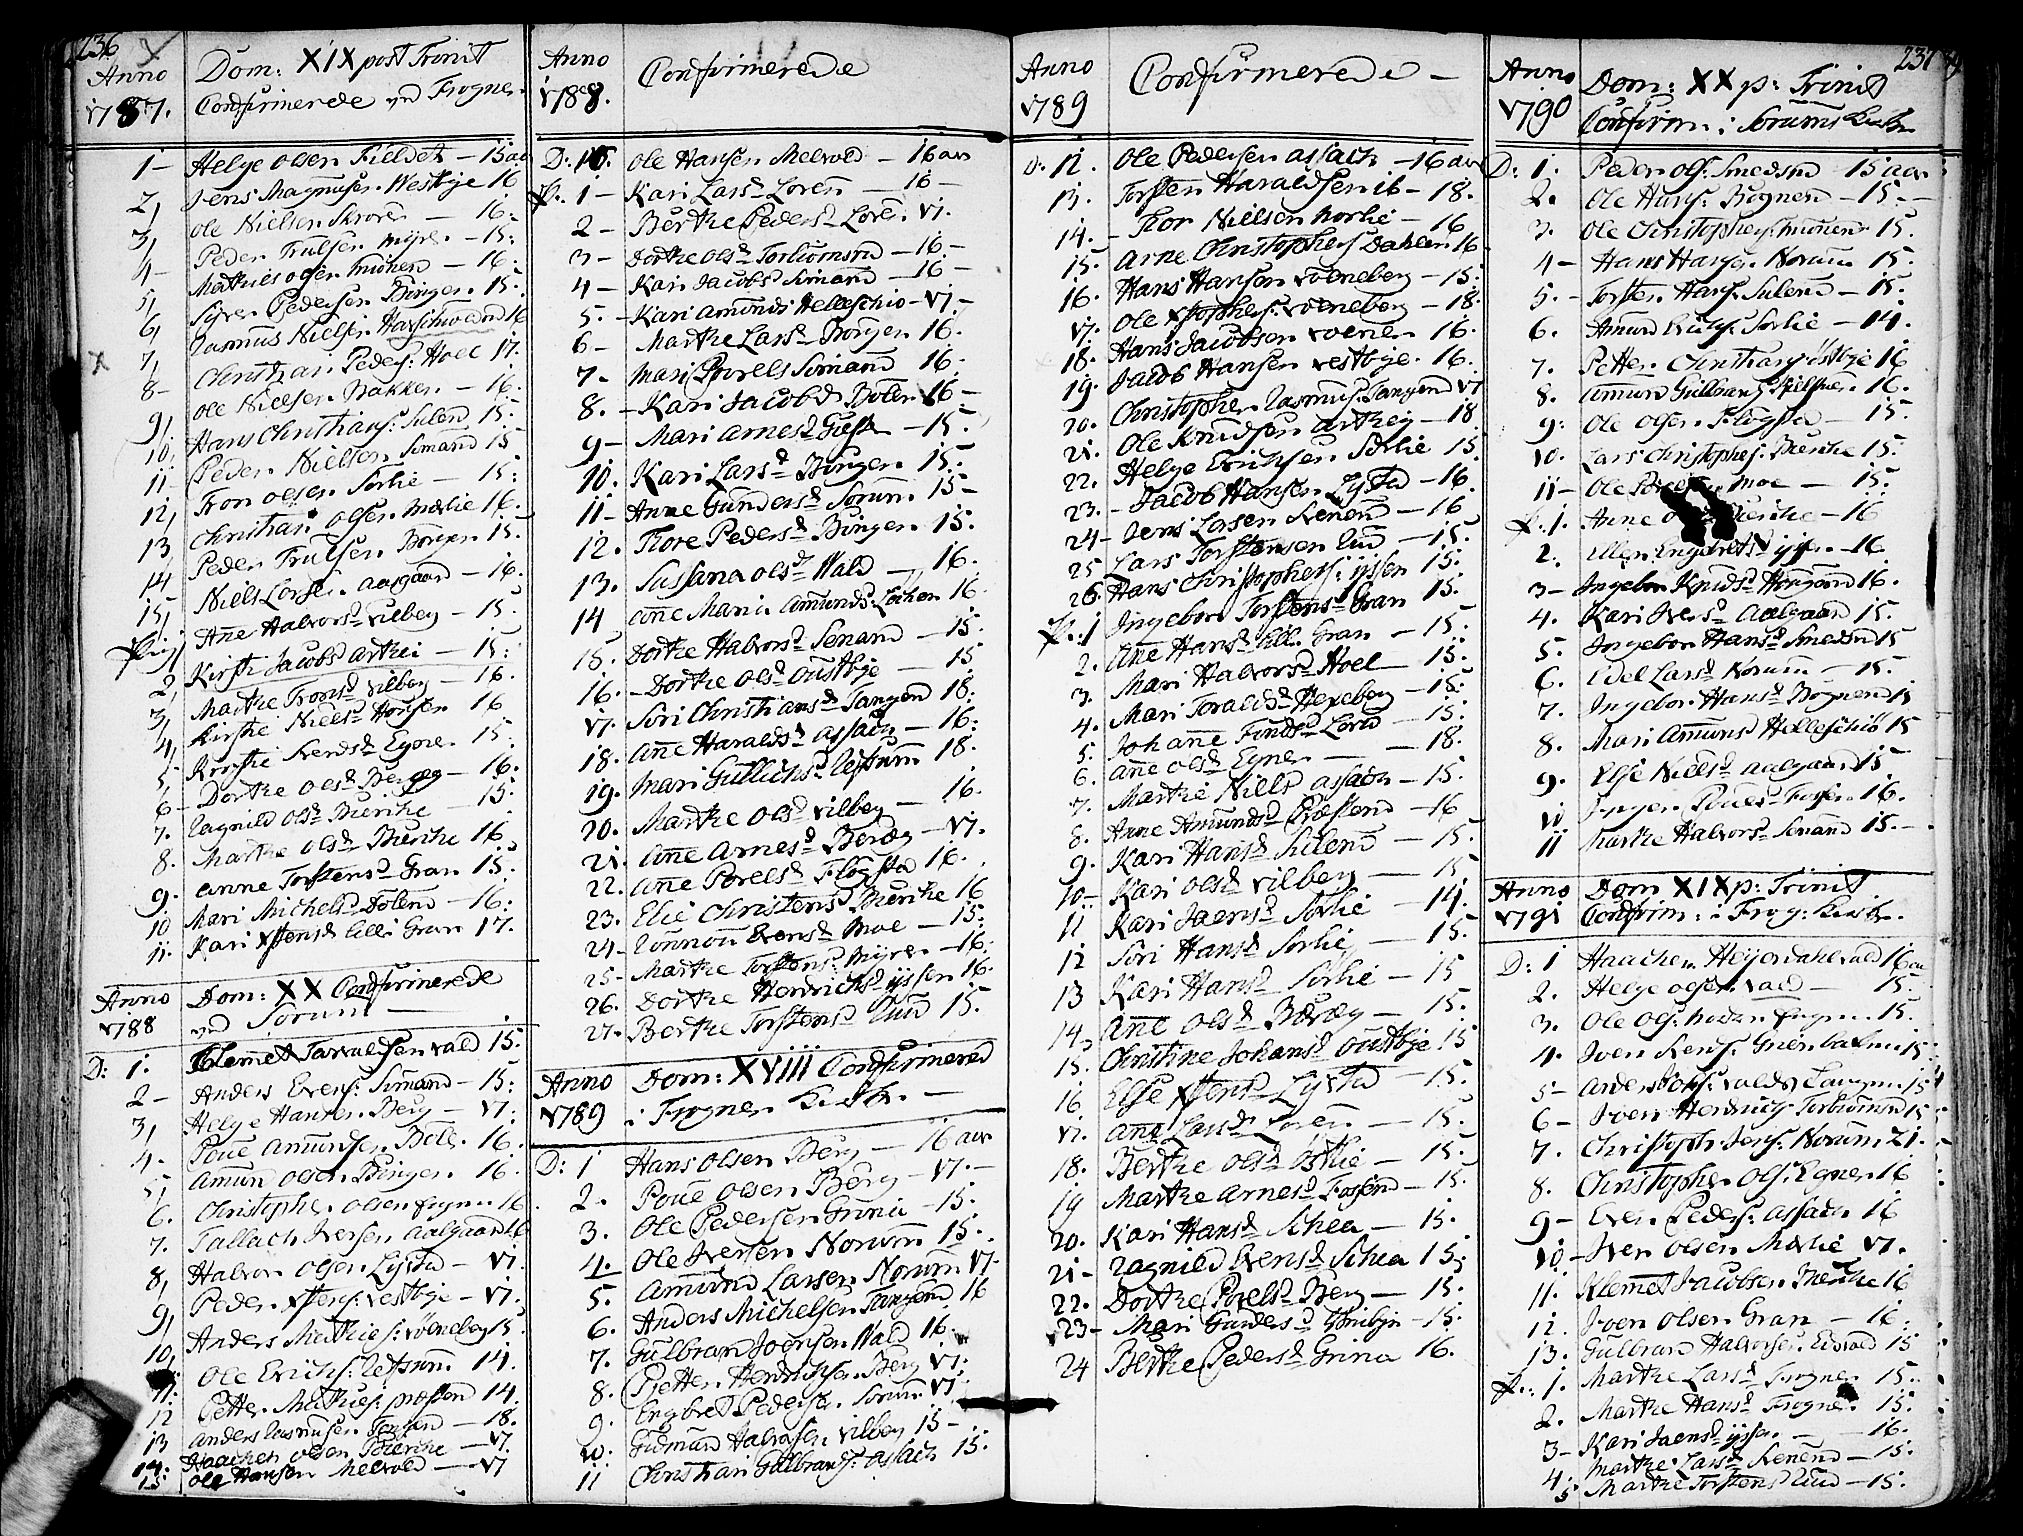 236
Anno 1787. Dom: XIX post Trinit
Confirmerede ved Frogner.
1 - Helge Olsen Fieldet - 15 aar
2, Jens Magnusen Westbye 16
3, Ole Nielsen Skroven - 16.
4 - Peder Trulsen Myre. - 15:
5, Mathies Olsen - 16.
6, Syver Pedersen Binger. 15.
7, Rasmus Nielsen 16
8 - Christian Peders: Hoel 17.
9, Ole Nielsen Bakken - 16.
10, Hans Christians: Sulend 15.
11 - Peder Nielsen Simand 15
12, Tron Olsen Sørlie - 15:
13, Christian Olsen Mælie 16.
14, Peder Trulsen Binger 15.
15, Niels Larsen Aasgaard - 16.
P: 1 Ane Halvorsd Vilberg - 15.
2, Kirsti Jacobsd Arthei - 15:
3, Marthe Tronsd Vilberg - 16.
4, Kirstie Nielsd Horsen 16
5 Kirstie Egner. 15.
6 - Dorthe Olsd Berg - 16.
7. Ragnild Olsd Bierche - 15:
8. Marthe Olsd Bierche 16.
9. Anne Torstensd Gran 15.
10 Mari Michelsd Dølend - 16.
11. Kari Xstensd Lilli Gran 17.
Anno 1788 Dom: XX Confirmerede
ved Sorum -
D: 1. Clemet Tarvaldsen Vald 15.
2 - Anders Evens: Simand - 15:
3, Helge Hansen Berg - 17.
4 - Poue Amundsen Bøle. 16.
5, Amun Olsen Binger. 16.
6. Christopher Olsen Frogner 16
7. Tallach Iversen Aalgaard 16
8, Halvor Olsen Lysta - 17.
9, Peder Xstens: Vestbye - 17.
10, Anders Mathies: Voeneberg 15.
11: Ole Erichs: 14.
12 Petter Mathies: Præstend 14.
13 Anders Rasmusen Tangend - 18.
14: Haachen Olsen Bierche - 17.
15: Ole Hansen Melvold - 17
Anno 1788. Confirmerede
D: 16. Ole Hansen Melvold - 16 aar
P: 1 - Kari Larsd Loren - 16 -
2 - Berthe Pedersd Loren. 17.
3 - Dorthe Olsd Torbiørnsrud - 16 -
4 - Kari Jacobsd Simand - 16 -
5 - Kari Amunds Helleschio - 17 -
6 - Marthe Larsd Binger 16.
7 - Mari Povels Simand 16.
8. - Kari Jacobsd Bølen 16 -
9 - Mari Arnesd - 15.
10. Kari Larsd Binger. 15.
11 - Anne Gundersd Sorum 15 -
12. Thore Pedersd Binger. 15.
13. Sussana Olsd Wald -, 16.
14 Ane Maria Amunds Lochen 16.
15. Dorthe Halvorsd Senand - 15.
16. - Dorthe Olsd Oustbye - 15
17. Siri Christiansd Tangend 18.
18. Ane Haraldsd Assach - 16.
19. Mari Gullichsd 18.
20. Marthe Olsd Vilberg - 16.
21. Ane Arnesd Beræg - 17.
22. Ane Povelsd Flogsta 16.
23. Elie Christensd Bierche 16
24 - Evensd Moe - 15.
25 - Marthe Torstensd Myre. - 16.
26. Dorthe Hendrichsd Ijssen 16.
27. - Berthe Torstensd Lund 15.
Anno 1789 Dom: XVIII Confirmered
i Frogner Kirche. -
D: 1 Hans Olsen Berg - 16 aar
2. Poue Olsen Berg - 17. -
3. Ole Pedersen Grinia - 15.
4. Ole Iversen Norum 15.
5. Amund Larsen Norum 17.
6. Anders Michelsen Tangend 16
7. Gulbran Joensen Wald 16.
8. Petter Hendrichsen Berg 17.
9. Engbret Pedersen Sorum 17.
10. Gudmund Halvorsen Vilberg 15 -
11 Christian Gulbrans: Assach 15.
Anno 1789 Confirmerede -
D: 12. Ole Pedersen Assach - 16 aar
13. Torsten Haraldsen ib - 18.
14. - Thor Nielsen Norlie - 16
15. Arne Christophers Dahlen 16 -
16. Hans Hansen Voeneberg - 15.
17. Ole Xstophers: Voeneberg - 18.
18. Hans Jacobsen Voenen 16.
19. Jacob Hansen Vestbye. 16.
20. Christopher Rasmus: Tangend 17
21. Ole Knudsen Arthey - 18
22. Helge Erichsen Sørlie 15
23. - Jacob Hansen Lysta - 16.
24 - Jens Larsen Kenend - 16
25 Lars Torstensen Lund - 15.
26. Hans Christophers: Ijssen 15.
P: 1 Ingebor Torstensd Gran 15.
2. Ane Hansd Lille Gran - 15.
3. Mari Halvorsd Hoel - 15.
4. Mari Toraldsd Hexeberg - 15.
5. Johane Findsd Lorid - 15.
6. Ane Olsd Egner - - 18.
7. Marthe Nills Assach - 15.
8. Anne Amundsd Præstend - 16
9. Kari Hansd Sulend - 15.
10. - Kari Olsd Vilberg - 15.
11 Kari Jaensd Sørlie - 14.
12 Siri Hansd Sørlie - 15.
13 Kari Hansd Sørlie - 15
14, Ane Olsd Bæræg - 15.
15. Christine Johansd Oustbye 15
16 Else Xstensd Lysta - 15.
17. Ane Larsd Loren - 15.
18. Berthe Olsd Østlie - 15.
19 Marthe Arnesd Fossend - 15.
20. Kari Hansd Schea - 15.
21 - Ragnild Evensd Schea 15.
22. Dorthe Povelsd Berg - 15.
23 - Mari Gundersd - 15.
24 Berthe Pedersd Grina 16.
237
Anno 1790 Dom: XX p: Trinit
Confirm: i Sorums Kirche
D: 1. Peder Ols: Smedsrud - 15 aar
2. Ole Hans: Bognend - 15. -
3. Ole Christophers: 15.
4 - Hans Hansen Norum 15.
5. - Torsten Hans: Sulend - 15.
6. Amund Erichs: Sørlie - 14.
7. Petter Christians: Østbye 16
8. Amun Gulbrans: 16.
9: Ole Olsen Flogsta - 15.
10. Lars Christophers: Bierche 15.
11 - Ole Moe - 15.
P: 1. Anne Bierche - 16
2. Ellen Engebretsd Ijssen - 16
3 - Ingebor Knudsd Horgaard 16.
4. Kari Iversd Aalgaard 15.
5. Ingebor Hansd Smedsrud 15
6. Edel Larsd Norum - 15.
7. Ingebor Hansd Bognend 15
8. Mari Amunsd Helleschiø 15
9. Else Nielsd Aalgaard 15
10 Inger Pouelsd Fossen 16.
11 Marthe Halvorsd Senand 15. -
Anno 1791 Dom XIX p: Trinit
Confirm: i Frog: Kirche.
D: 1 Haachen Heyerdahl Vald 16 aar
2. Helge Olsen Vald - 15.
3. Ole Ols: Frogner 15.
4. Iver 15
5 - Anders Vald 15
6 - Iver Hendrichs Torbiørnsrud 15
7. Christoph: Jens: Norum 21.
8. Christopher Ols: Egner 16
9 - Even Peders: Assach 16
10 - Iver Olsen Mælie 17.
11. Klemet Jacobsen Bierche 16
12. Iver Olsen Gran - 16.
13. Gulbrand Halvorsen Edsvald 15
P: 1. Marthe Larsd Frogner 15.
2. Marthe Hansd Frogner. 15.
3 - Kari Jaensd Ijssen - 16.
4: Marthe Larsd Kenend - 15.
5 Marthe Torstensd Lund - 15.